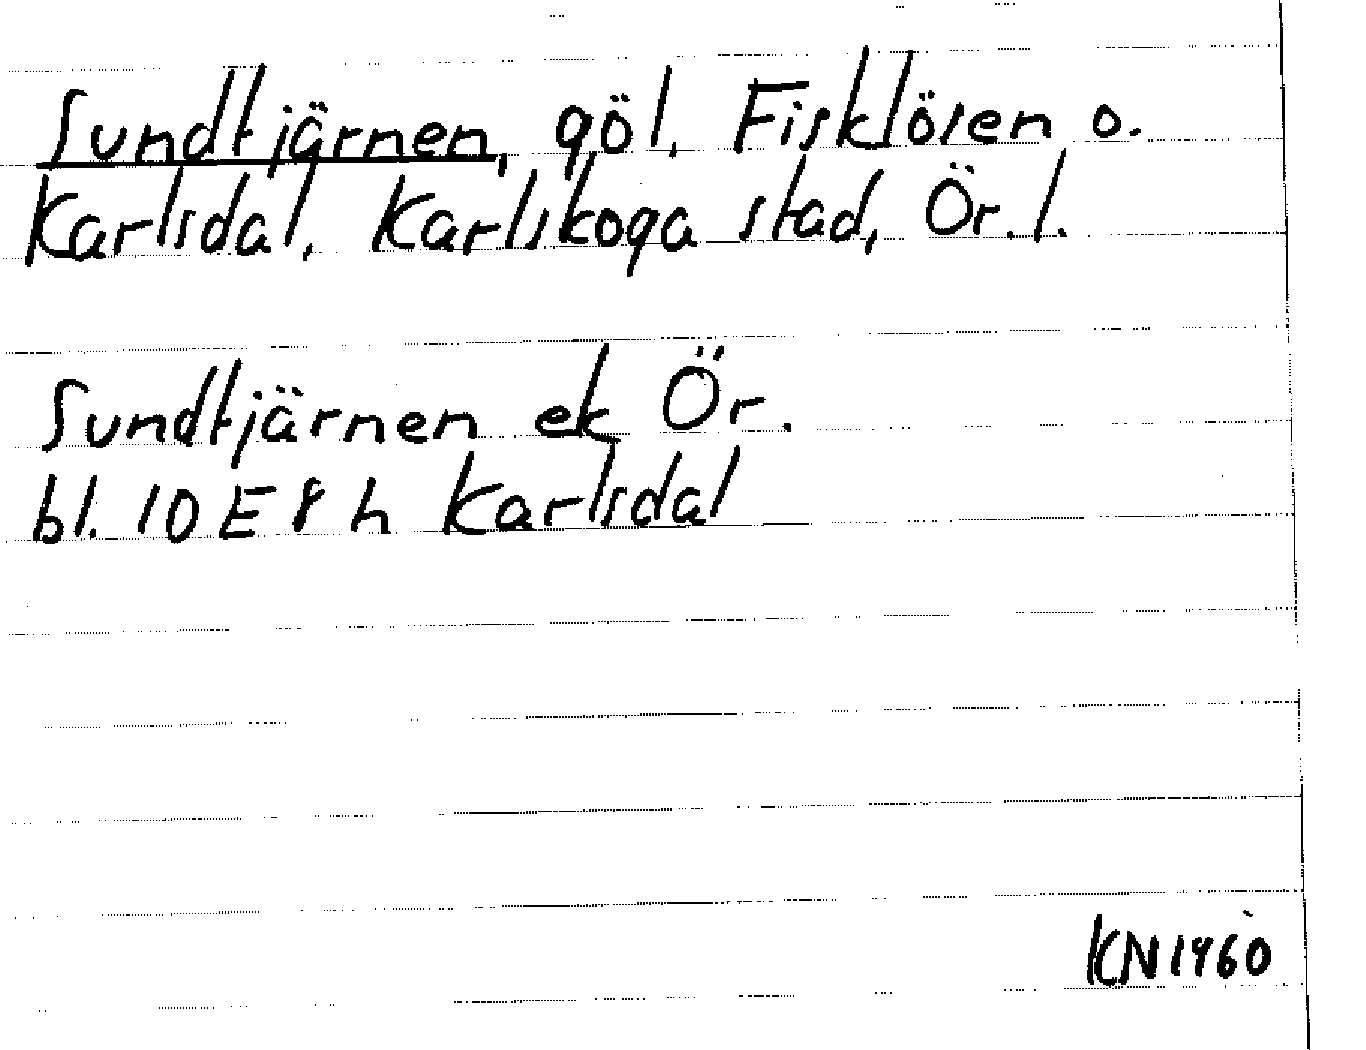 Sundtjärnen, göl, Fisklösen o.
Karlsdal, Karlskoga stad, Ör. l.
Sundtjärnen ek Ör.
bl. 10 E 8 h Karlsdal
KN1960